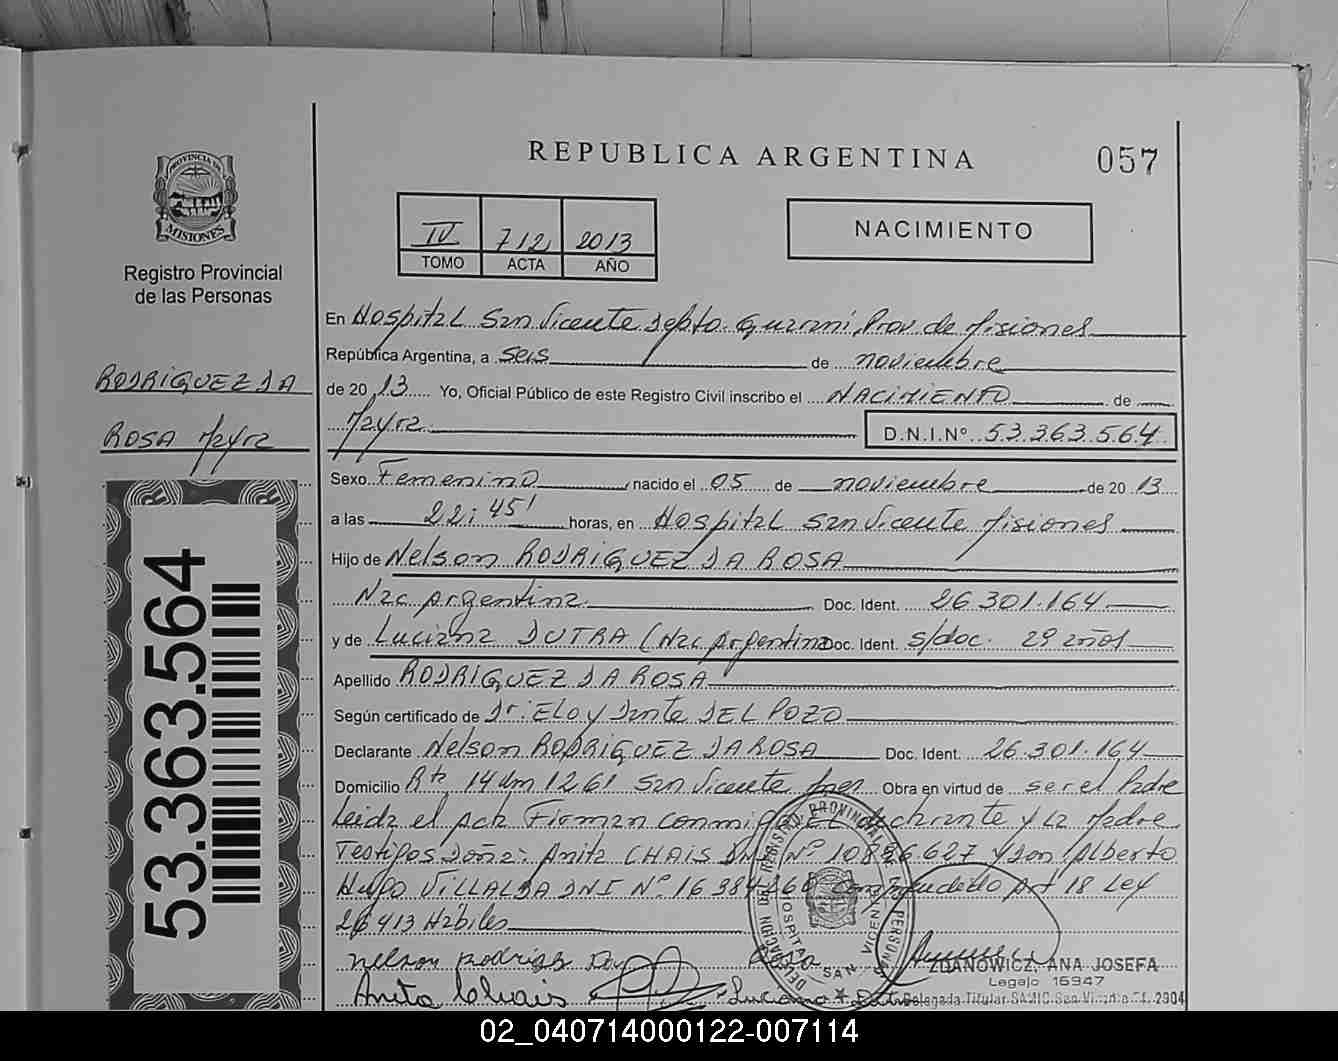 REPUBLICA ARGENTINA
057
PROVINCIA DE
MISIONES
Registro Provincial
de las Personas
IV 712 2013
TOMO ACTA AÑO
NACIMIENTO
En Hospital San Vicente Depto. Guaraní, Prov de Misiones
República Argentina, a seis de noviembre
de 20 13 Yo, Oficial Público de este Registro Civil inscribo el NACIMIENTO de
Mayra D.N.I.Nº 53.363.564
RODRIGUEZ DA
ROSA Mayra
Sexo Femenino nacido el 05 de noviembre de 20 13
a las 22:45' horas, en Hospital San Vicente Misiones
Hijo de Nelson RODRIGUEZ DA ROSA
Nac Argentina Doc. Ident. 26.301.164
y de Luciana DUTRA (Nac Argentina Doc. Ident. s/doc. 29 años
Apellido RODRIGUEZ DA ROSA
Según certificado de Dr: Eloy Dante DEL POZO
Declarante Nelson RODRIGUEZ DA ROSA Doc. Ident. 26.301.164
Domicilio Rta 14 Km 1261 San Vicente Mnes Obra en virtud de ser el Padre
Leida el Acta Firman conmigo EL declarante y La Madre
Testigos Doña: Anita CHAIS DNI Nº 10826.627 y Don Alberto
Hugo VILLALBA DNI Nº 16 384 Art 18 Ley
26413 Hábiles
53.363.564
Nelson Rodrigez Da Rosa
Anita Chais
Luciana
DELEGACION DEL REGISTRO PROVINCIAL DE LAS PERSONAS
HOSPITAL SAN VICENTE
ZDANOWICZ, ANA JOSEFA
Legajo 15947
Delegada Titular SAMIC San Vicente 2904
02_040714000122-007114